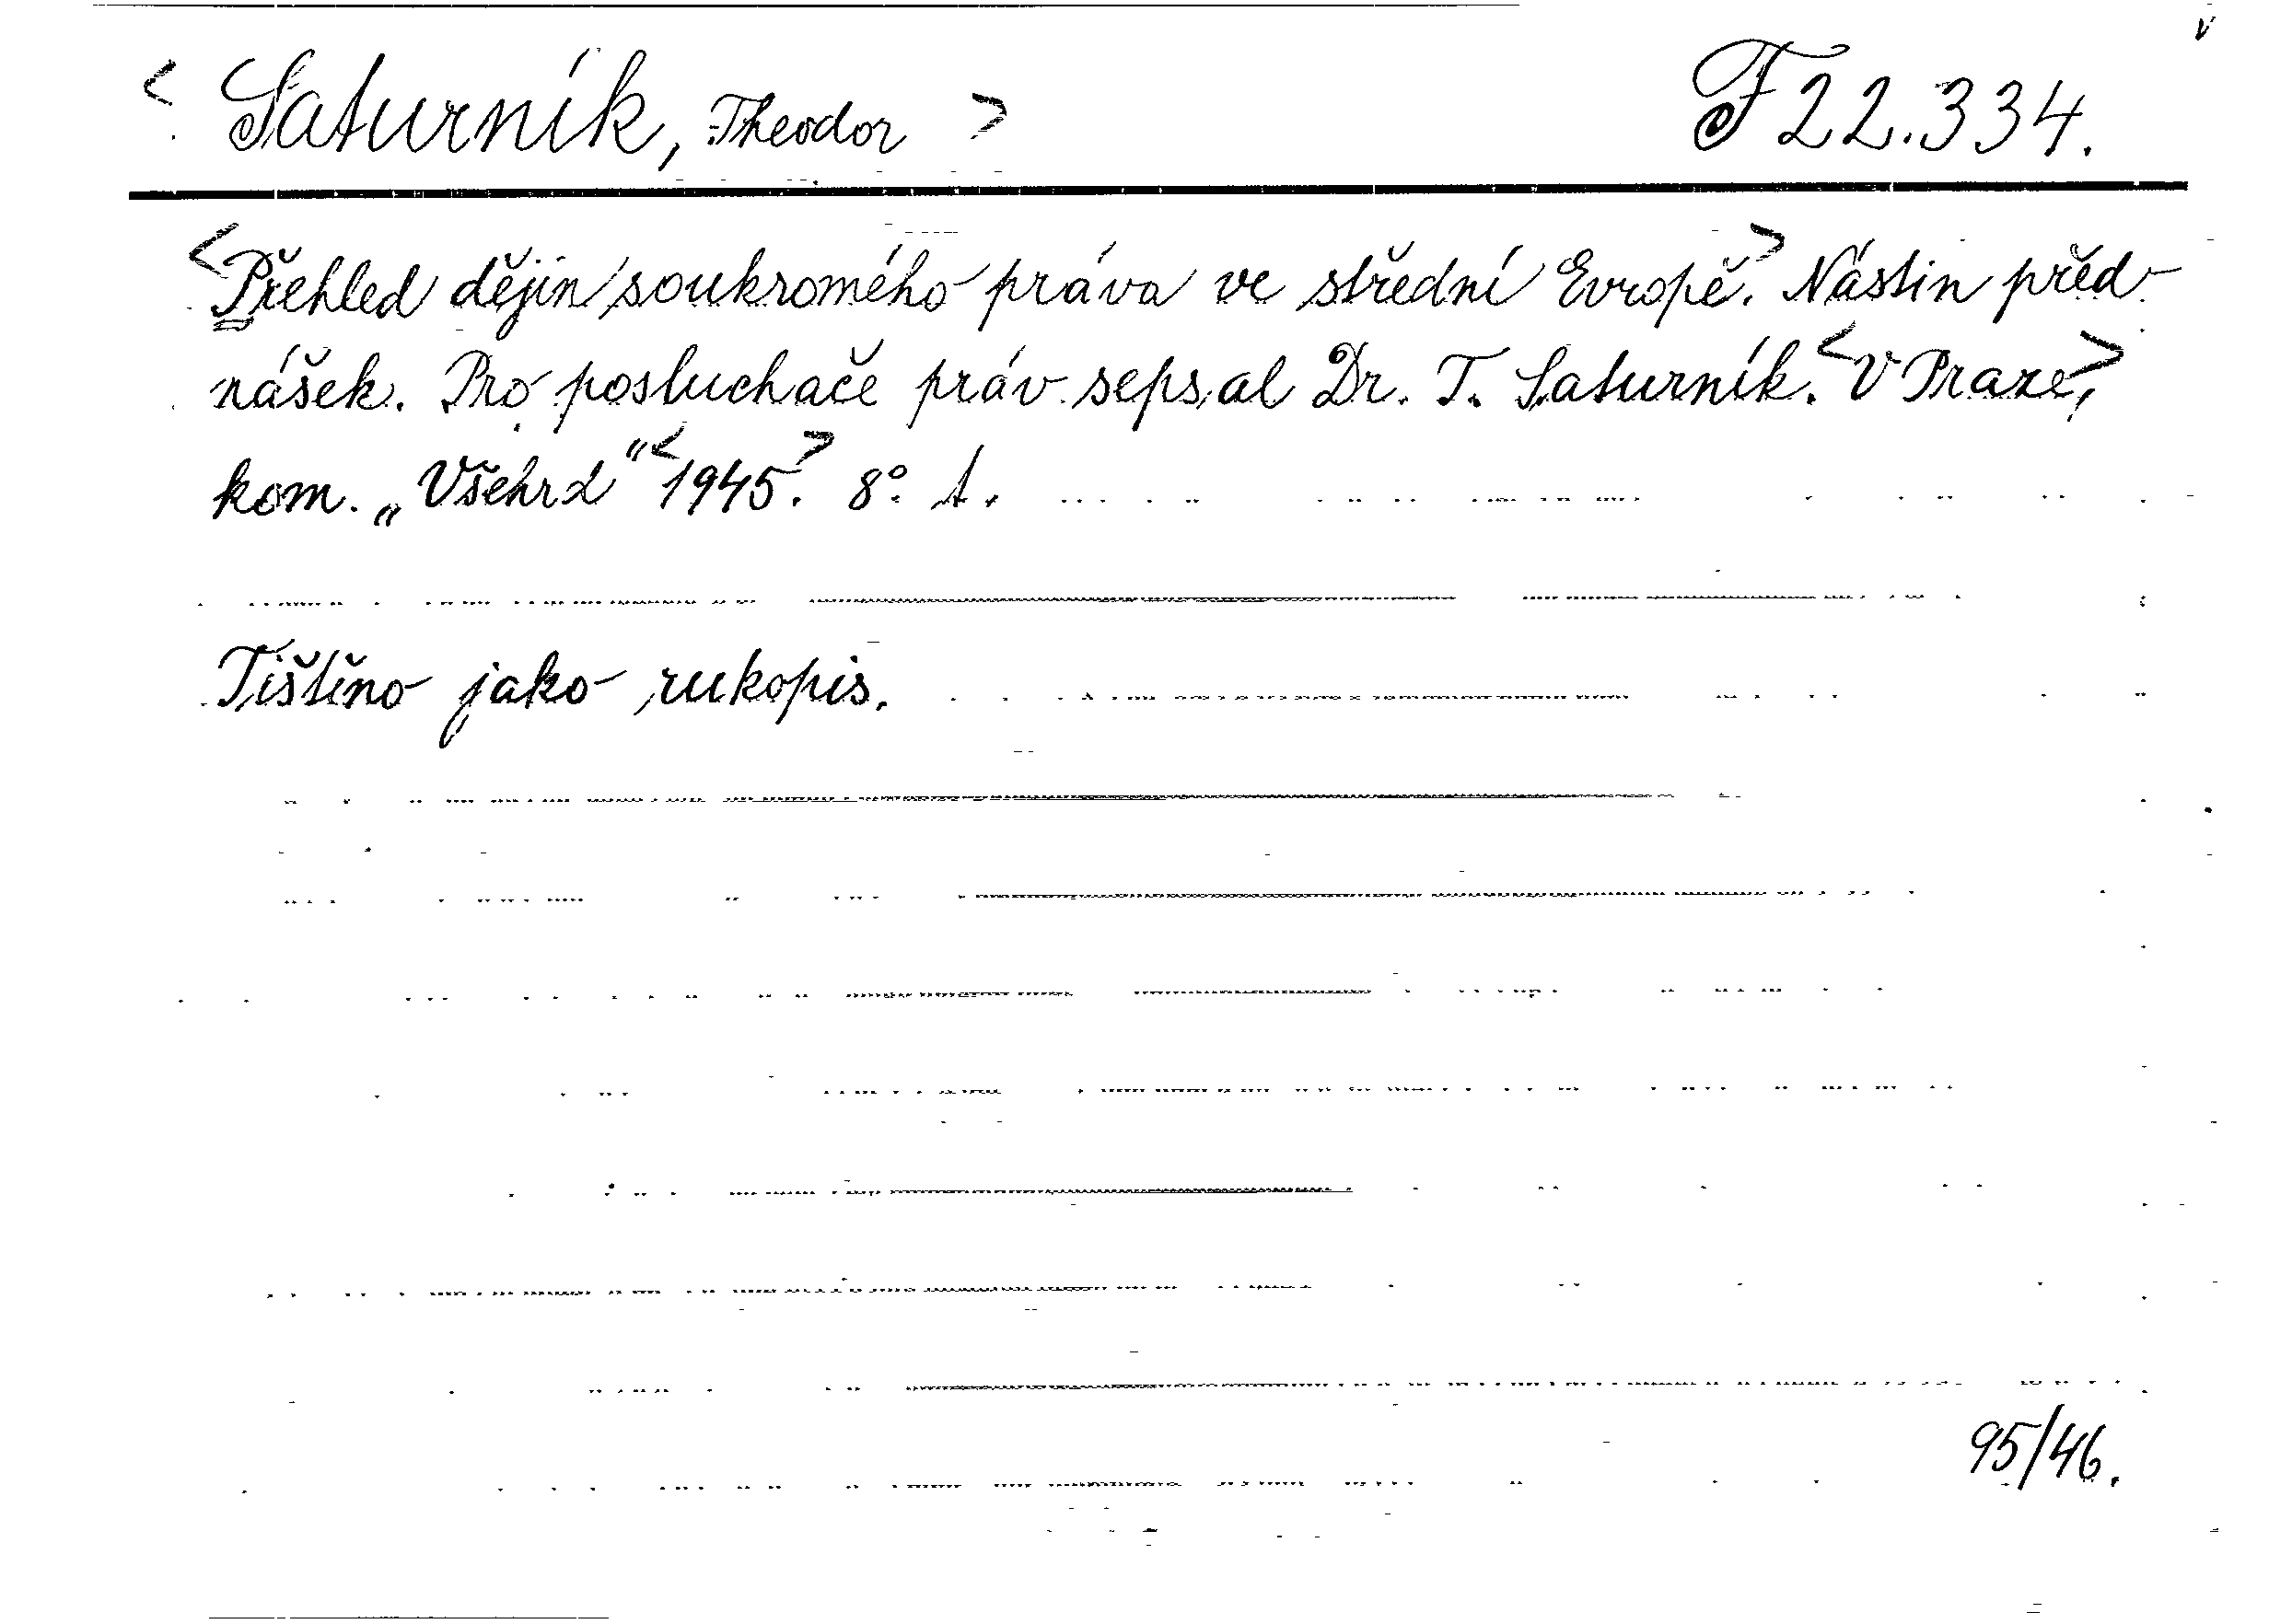 < Saturník, Theodor > F 22.334.
<Přehled dějin soukromého práva ve střední Evropě.> Nástin před-
nášek. Pro posluchače práv sepsal Dr. T. Saturník. <V Praze,>
kom. „Všehrd" <1945.> 8°. 1.
Tištěno jako rukopis.
95/46.